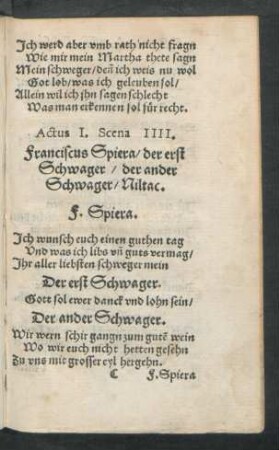 Ich werd aber vmb rath nicht fragn
Wie mir mein Martha thete sagn
Mein schweger/ deñ ich weis nu wol
Got lob/ was ich geleuben sol/
Allein wil ich jhn sagen schlecht
Was man erkennen sol für recht.
Actus I. Scena IIII.
Franciscus Spiera/ der erst
Schwager / der ander
Schwager/ Niltac.
F. Spiera.
Ich wunsch euch einen guthen tag
Vnd was ich libs vñ guts vermag/
Ihr aller liebsten schweger mein
Der erst Schwager.
Gott sol ewer danck vnd lohn sein/
Der ander Schwager.
Wir wern schir gangn zum gutē wein
Wo wir euch nicht hetten gesehn
Zu vns mit grosser eyl hergehn.
C F. Spiera